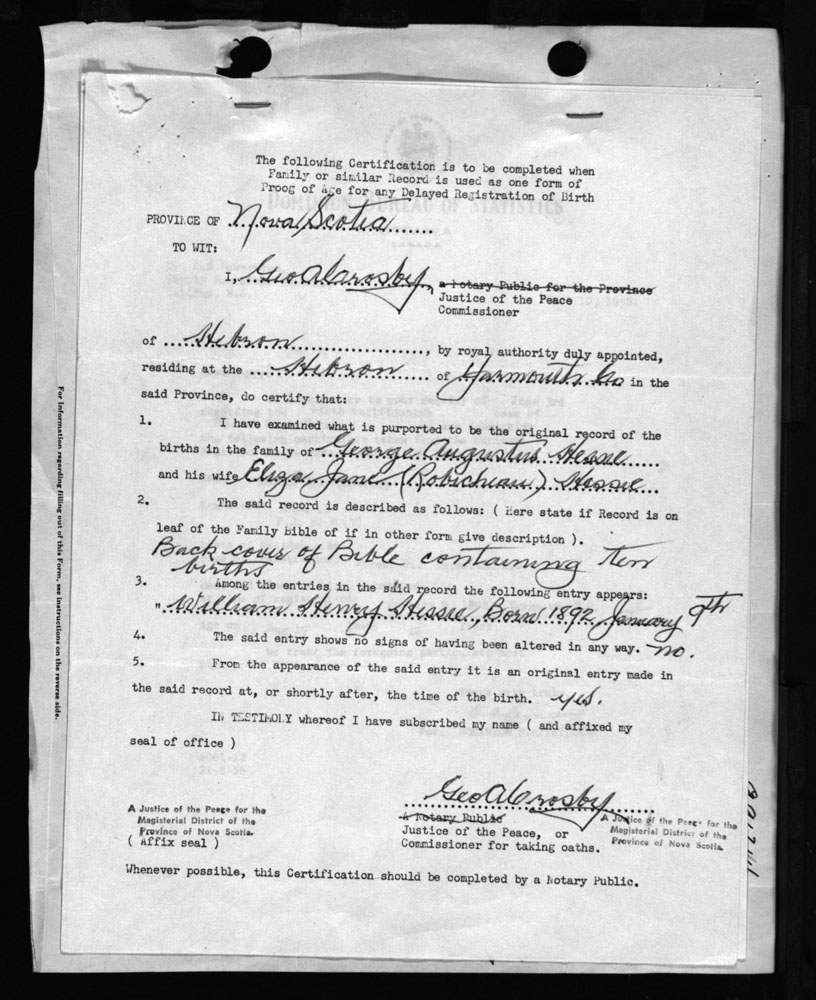 The following Certification is to be completed when
Family or similar Record is used as one form of
Proog of Age for any Delayed Registration of Birth
DOMINION BUREAU OF STATISTICS
CANADA
PROVINCE OF Nova Scotia
TO WIT:
I, Geo A Crosby, a Notary Public for the Province
Justice of the Peace
Commissioner
of Hebron, by royal authority duly appointed,
residing at the Hebron of Yarmouth Co in the
said Province, do certify that:
1. I have examined what is purported to be the original record of the
births in the family of George Augustus Hessie
and his wife Eliza Jane (Robicheau) Hessie
2. The said record is described as follows: ( Here state if Record is on
leaf of the Family Bible of if in other form give description ).
Back cover of Bible containing ten
births
3. Among the entries in the said record the following entry appears:
" William Henry Hessie, Born 1892 January 9th
4. The said entry shows no signs of having been altered in any way. no.
5. From the appearance of the said entry it is an original entry made in
the said record at, or shortly after, the time of the birth. yes.
IN TESTIMONY whereof I have subscribed my name ( and affixed my
seal of office )
Geo A Crosby
A Notary Public
Justice of the Peace, or
Commissioner for taking oaths.
A Justice of the Peace for the
Magisterial District of the
Province of Nova Scotia.
( Affix seal )
A Justice of the Peace for the
Magisterial District of the
Province of Nova Scotia.
Whenever possible, this Certification should be completed by a Notary Public.
For information regarding filling out of this Form, see instructions on the reverse side.